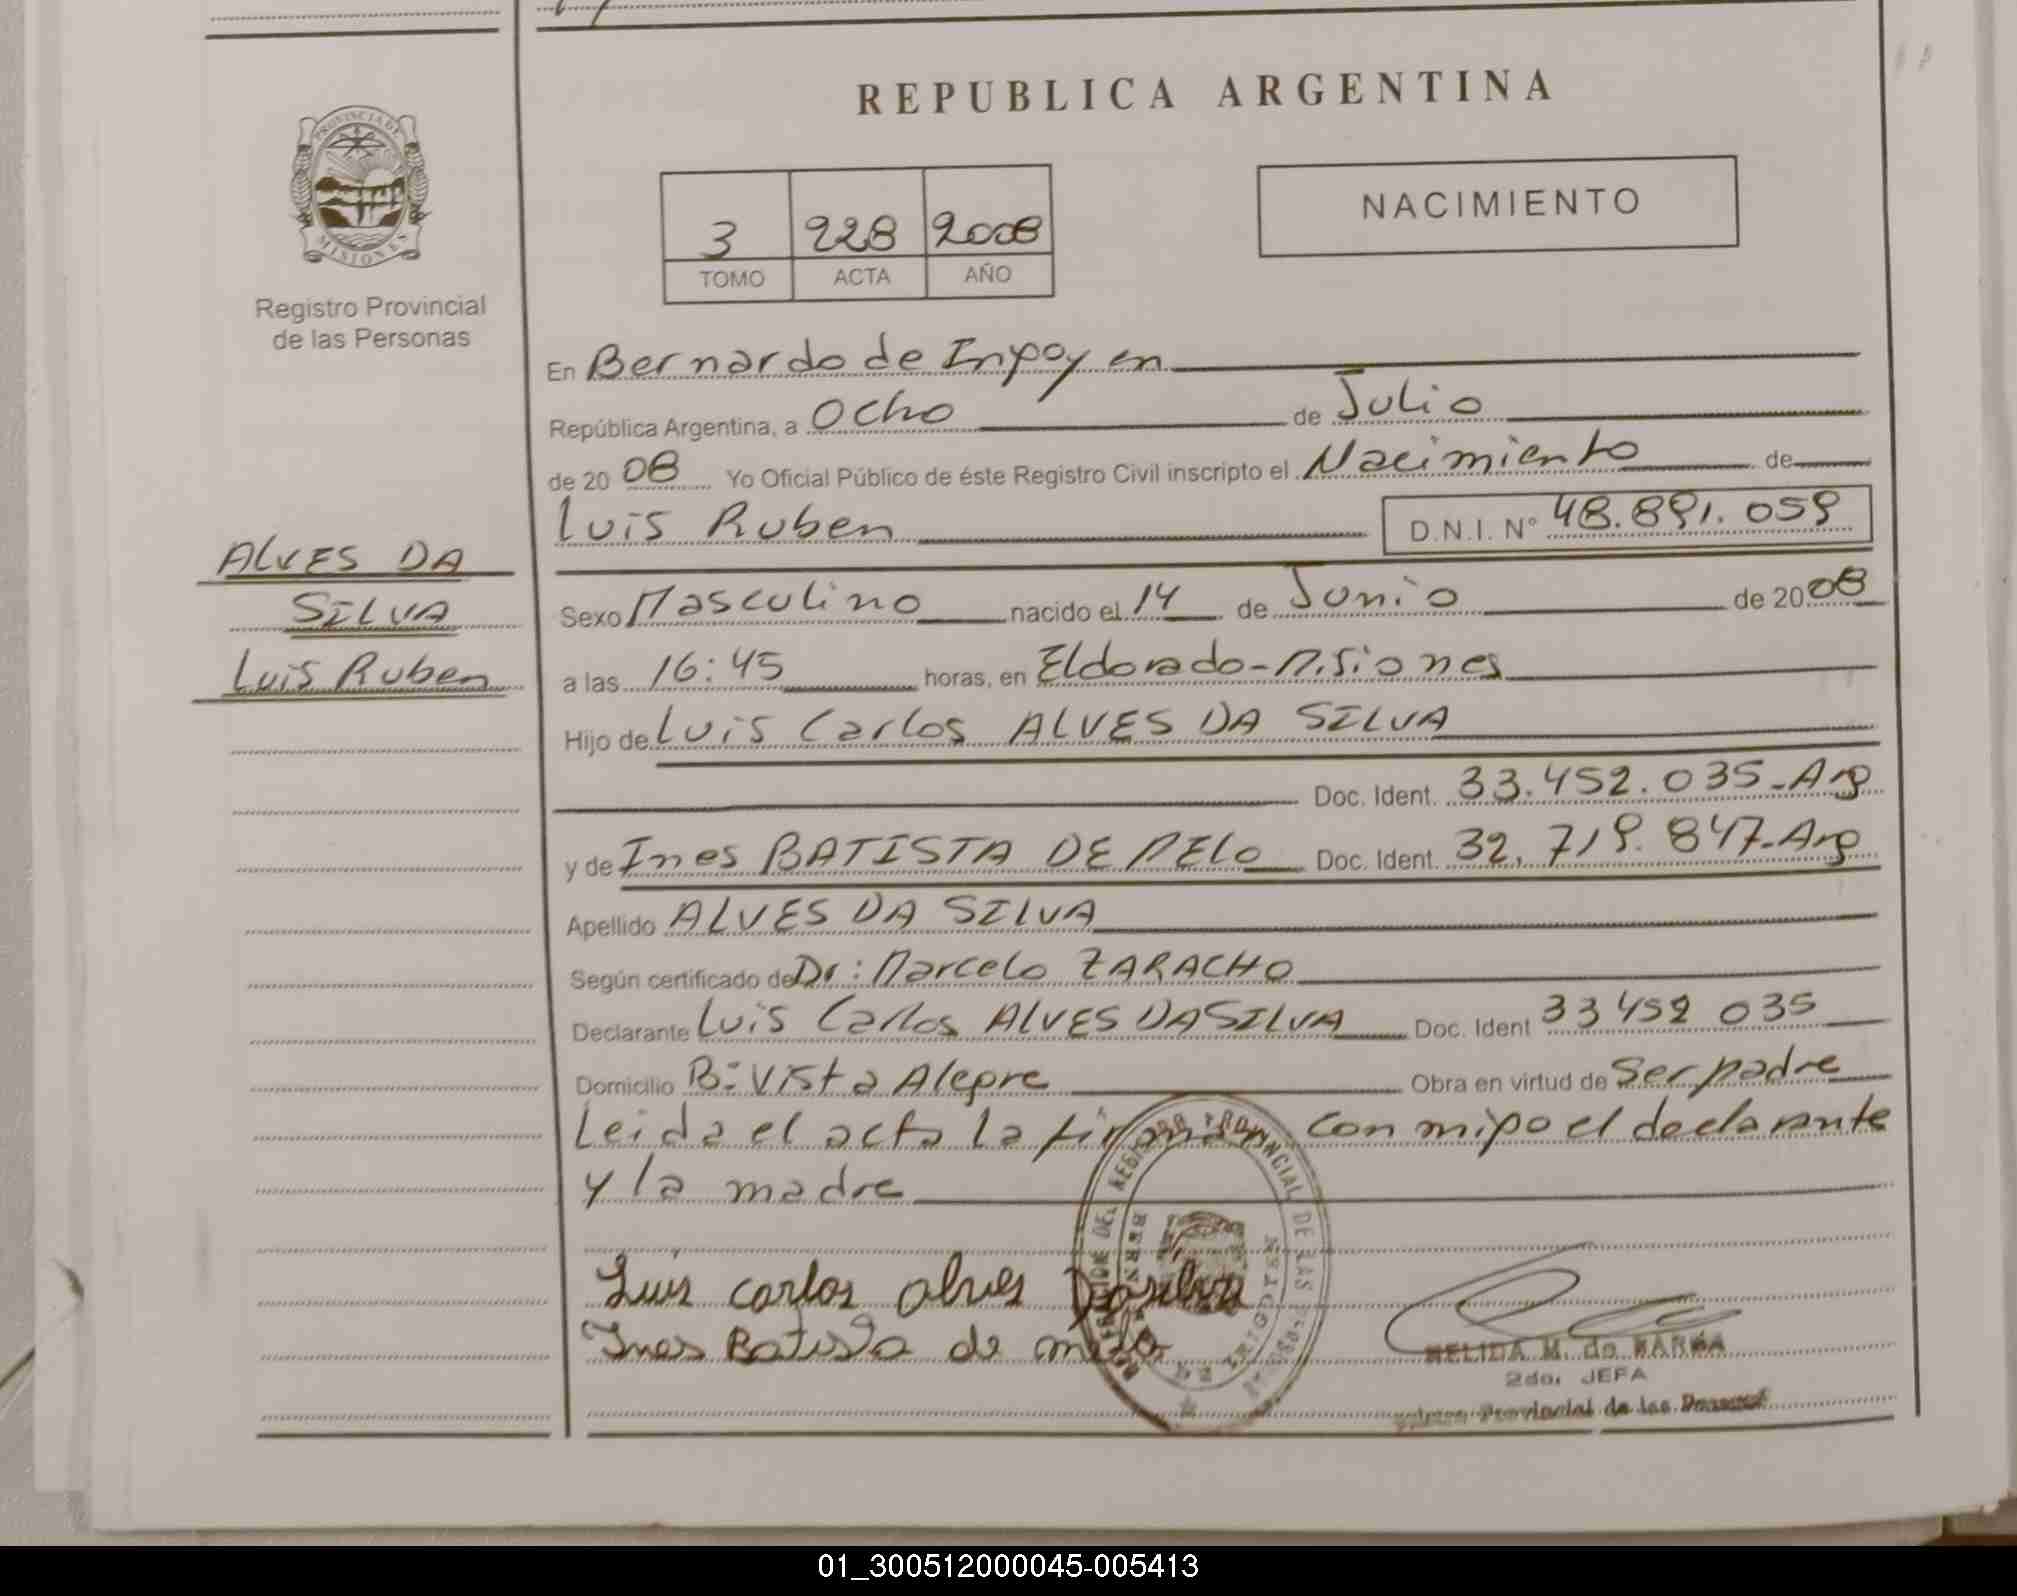 REPUBLICA ARGENTINA
PROVINCIA DE
MISIONES
Registro Provincial
de las Personas
3 228 2008
TOMO ACTA AÑO
NACIMIENTO
En Bernardo de Irigoyen
República Argentina, a Ocho de Julio
de 20 08 Yo Oficial Público de éste Registro Civil inscripto el Nacimiento de
Luis Ruben D.N.I. Nº 48.891.059
ALVES DA
SILVA
Luis Ruben
Sexo Masculino nacido el 14 de Junio de 20 08
a las 16:45 horas, en Eldorado-Misiones
Hijo de Luis Carlos ALVES DA SILVA
Doc. Ident. 33.452.035-Arg
y de Ines BATISTA DE MELO Doc. Ident. 32.719.847-Arg
Apellido ALVES DA SILVA
Según certificado de Dr: Marcelo ZARACHO
Declarante Luis Carlos ALVES DA SILVA Doc. Ident 33 452 035
Domicilio Bº Vista Alegre Obra en virtud de Ser padre
Leida el acta la firman con migo el declarante
y la madre
Luis carlos alves Dasilva
Ines Batista de melo
REGISTRO PROVINCIAL DE LAS
NELIDA M. de BARBA
2da. JEFA
Provincial de las
01_300512000045-005413